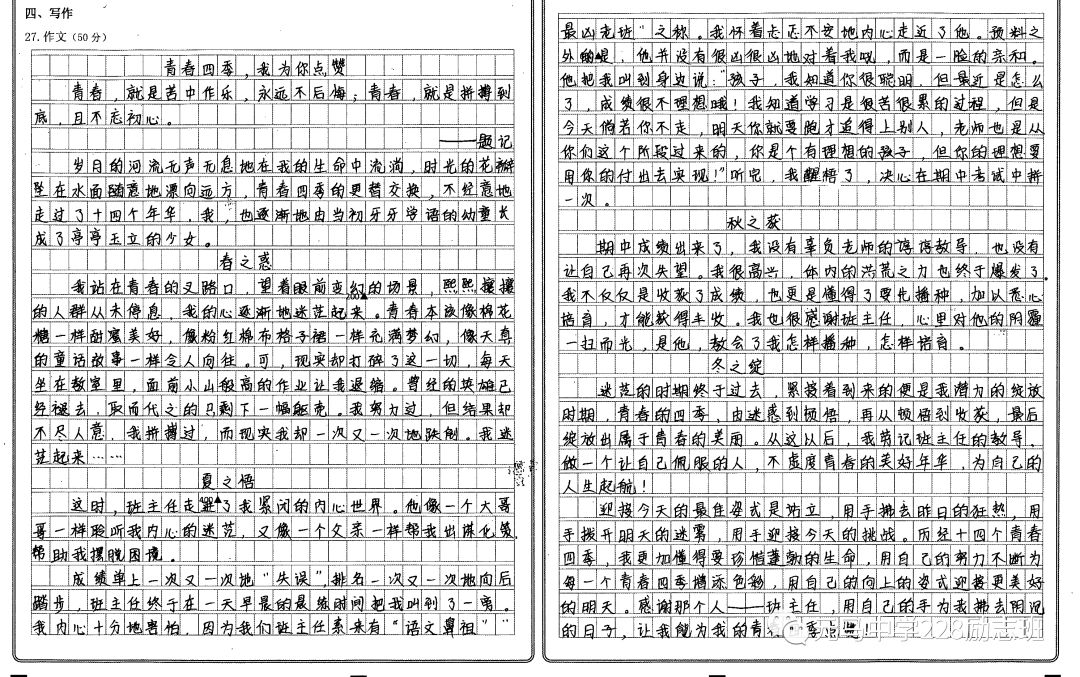 四、写作
27.作文（50分）
青春四季，我为你点赞
青春，就是苦中作乐，永远不后悔；青春，就是拼搏到
底，且不忘初心。
——题记
岁月的河流无声无息地在我的生命中流淌，时光的花瓣
坠在水面随意地漂向远方，青春四季的更替交换，不经意地
走过了十四个年华，我，也逐渐地由当初牙牙学语的幼童长
成了亭亭玉立的少女。
春之惑
我站在青春的叉路口，望着眼前变幻的场景，熙熙攘攘
200▲
的人群从未停息，我的心逐渐地迷茫起来。青春本该像棉花
糖一样甜蜜美好，像粉红棉布格子裙一样充满梦幻，像天真
的童话故事一样令人向往。可，现实却打碎了这一切，每天
坐在教室里，面前小山般高的作业让我退缩。曾经的英雄已
经褪去，取而代之的只剩下一幅躯壳。我努力过，但结果却
不尽人意，我拼搏过，而现实我却一次又一次地跌倒。我迷
茫起来……
夏之悟
400▲
这时，班主任走进了我紧闭的内心世界。他像一个大哥
哥一样聆听我内心的迷茫，又像一个父亲一样帮我出谋化策
帮助我摆脱困境。
成绩单上一次又一次地“失误”，排名一次又一次地向后
踏步，班主任终于在一天早晨的最练时间把我叫到了一离。
我内心十分地害怕，因为我们班主任素来有“语文鼻祖”“
最凶老班”之称。我怀着忐忑不安地内心走近了他。预料之
外的是，他并没有很凶很凶地对着我吼，而是一脸的亲和。
他把我叫到身边说：“孩子，我知道你很聪明，但最近是怎么
了，成绩很不理想哦！我知道学习是很苦很累的过程，但是
今天倘若你不走，明天你就要跑才追得上别人，老师也是从
你们这个阶段过来的，你是个有理想的孩子，但你的理想要
用你的付出去实现！”听完，我醒悟了，决心在期中考试中拼
一次。
秋之获
期中成绩出来了，我没有辜负老师的谆谆教导，也没有
让自己再次失望。我很高兴，体内的洪荒之力也终于爆发了。
我不仅仅是收获了成绩，也更是懂得了要先播种，加以悉心
培育，才能获得丰收。我也很感谢班主任，心里对他的阴霾
一扫而光，是他，教会了我怎样播种，怎样培育。
冬之绽
迷茫的时期终于过去，紧接着到来的便是我潜力的绽放
时期，青春的四季，由迷惑到顿悟，再从顿悟到收获，最后
绽放出属于青春的美丽。从这以后，我劳记班主任的教导，
做一个让自己佩服的人，不虚度青春的美好年华，为自己的
人生起航！
迎接今天的最佳姿式是站立，用手拂去昨日的狂热，用
手拨开明天的迷雾，用手迎接今天的挑战。历经十四个青春
四季，我更加懂得要珍惜蓬勃的生命，用自己的努力不断为
每一个青春四季增添色彩，用自己的向上的姿式迎接更美好
的明天。感谢那个人——班主任，用自己的手为我拂去阴沉
的日子，让我能为我的青春四季点赞！
中学228励志班